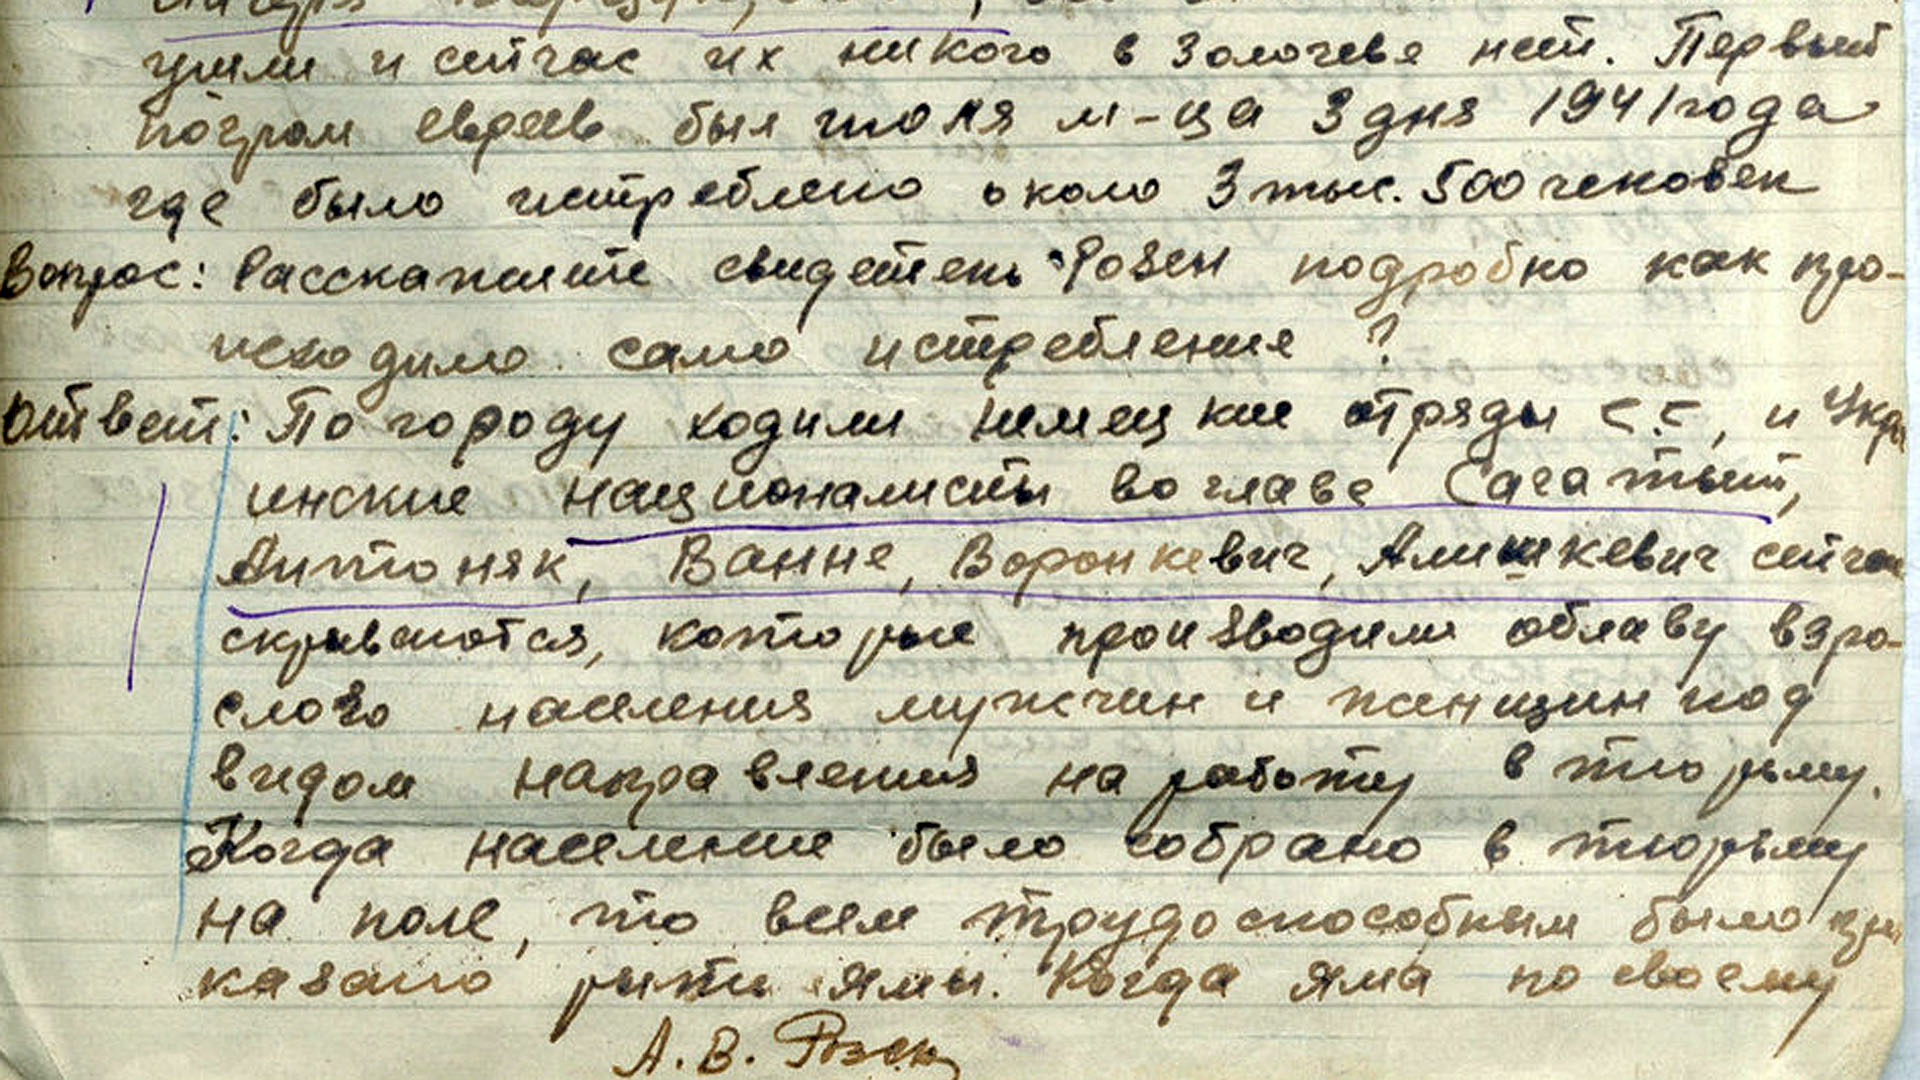 ушли и сейчас их никого в Золочеве нет. Первый
погром евреев был июля м-ца 3 дня 1941 года
где было истреблено около 3 тыс. 500 человек
Вопрос: Расскажите свидетель Розен подробно как про-
исходило само истребление?
Ответ: По городу ходили немецкие отряды С.С, и Укра
инские националисты во главе Сагатый,
Антоняк, Ванне, Воронкевич, Алишкевич сейчас
скрываются, которые производили облаву взро-
слого населения мужчин и женщин под
видом направления на работу в тюрьму.
Когда население было собрано в тюрьму
на поле, то всем трудоспособным было при
казано рыть ямы. Когда яма по своему
А. В. Розен